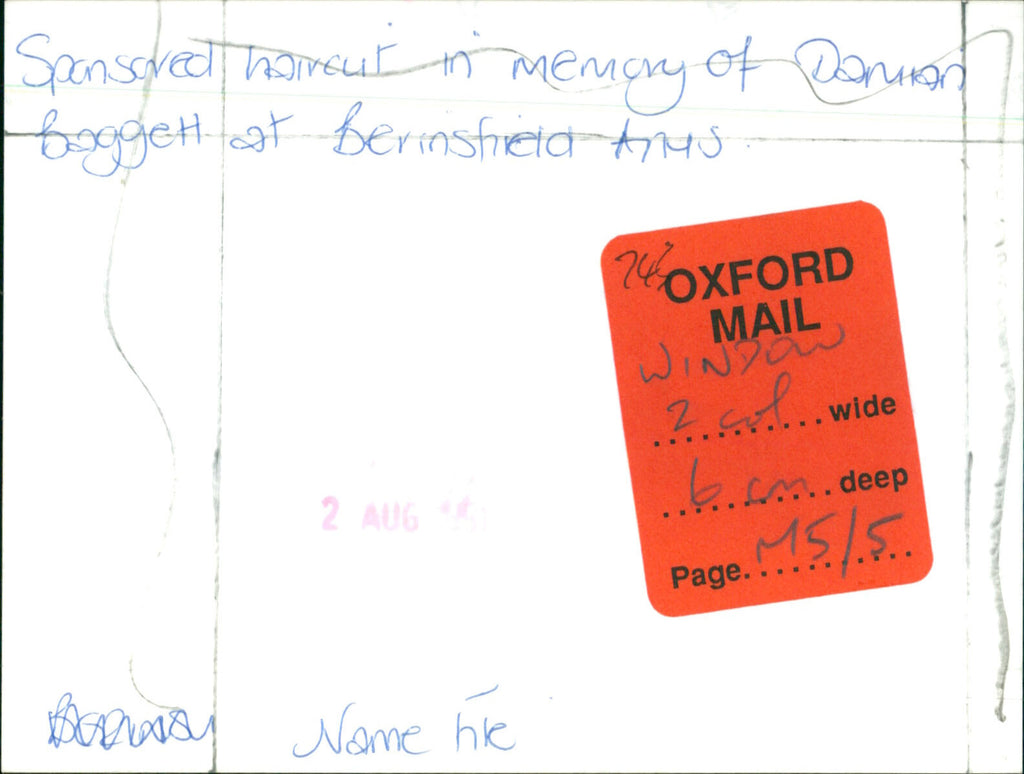 Sponsored haircut in memory of Damian
Baggett at Berinsfield Arms
743
OXFORD
MAIL
WINDOW
2 col wide
6 cm deep
Page M5/5
2 AUG
Name file